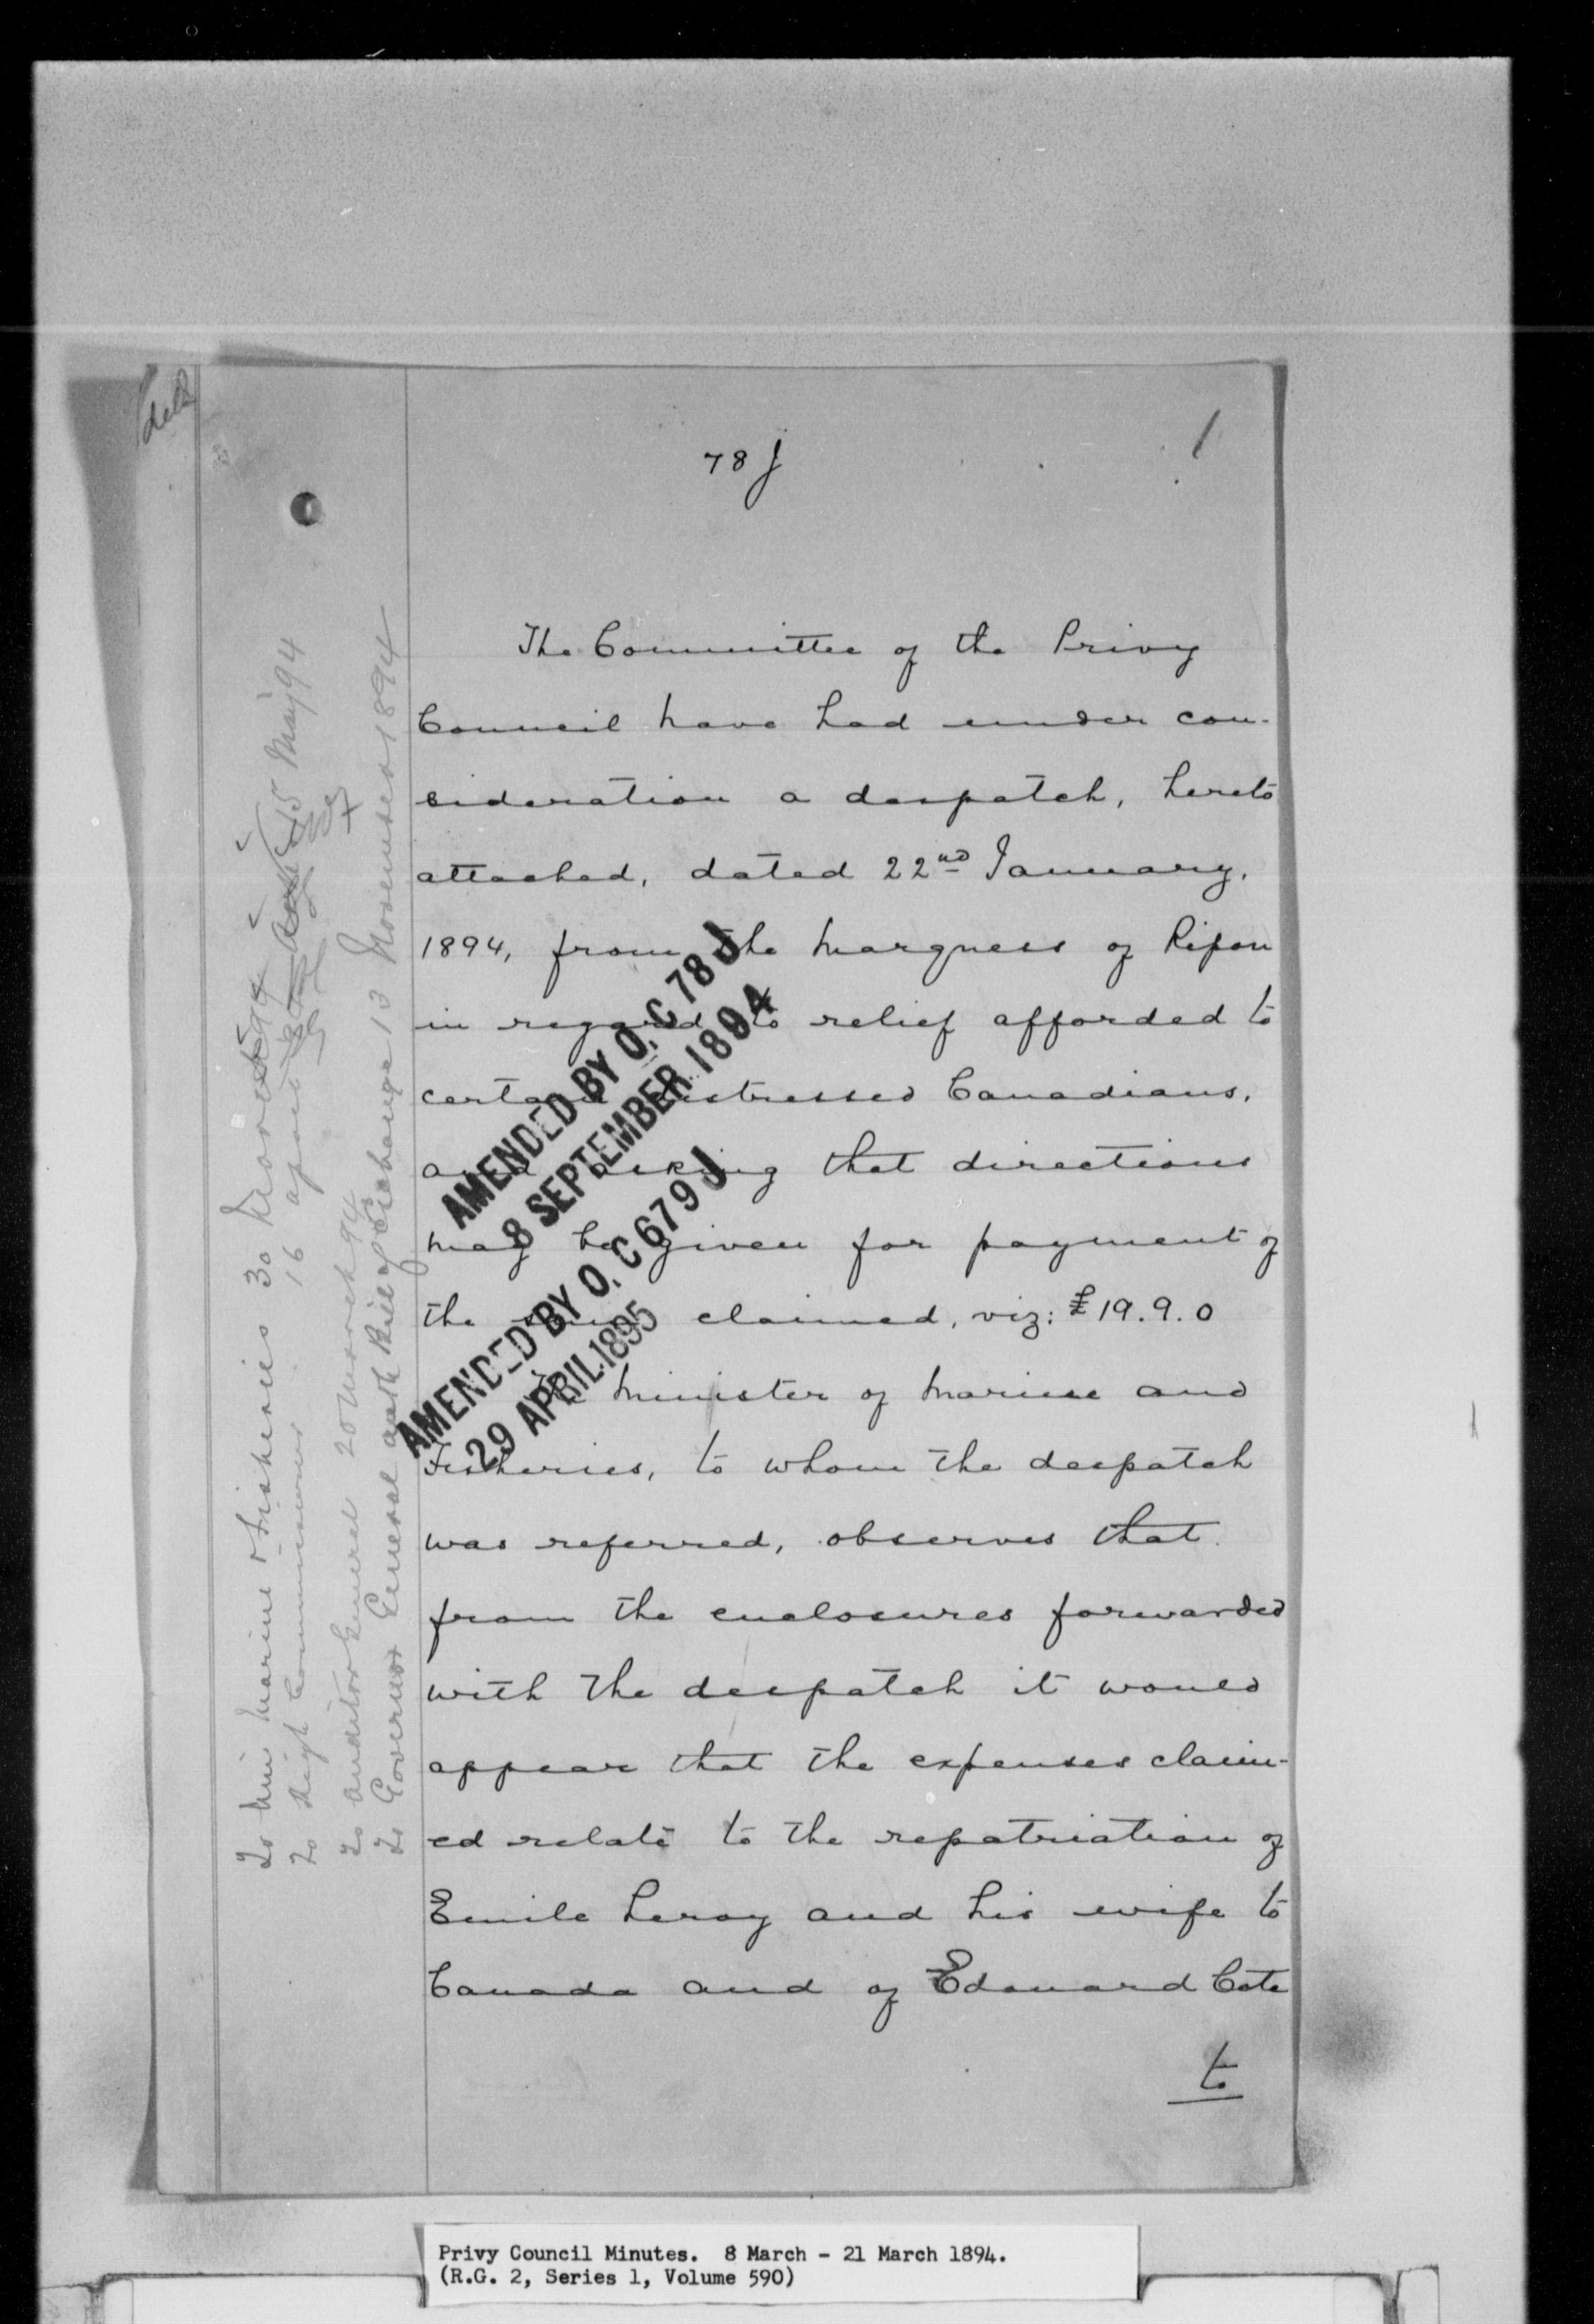 78 J
1
The Committee of the Privy
Council have had under con-
sideration a despatch, hereto
attached, dated 22nd January,
1894, from the Marquess of Ripon
in regard to relief afforded to
certain distressed Canadians,
and asking that directions
may be given for payment of
the sum claimed, viz: £19.9.0
The Minister of Marine and
Fisheries, to whom the despatch
was referred, observes that
from the enclosures forwarded
with the despatch it would
appear that the expenses claim-
ed relate to the repatriation of
Emile Leroy and his wife to
Canada and of Edouard Cote
to
AMENDED BY O.C 78 J
8 SEPTEMBER 1894
AMENDED BY O.C 679 J
29 APRIL 1895
To Min Marine & Fisheries 30 March 94
To High Commissioner 16 May 94
To Auditor General 20 March 94
To Governor General with Bill of Exchange 13 November 1894
Privy Council Minutes. 8 March - 21 March 1894.
(R.G. 2, Series 1, Volume 590)